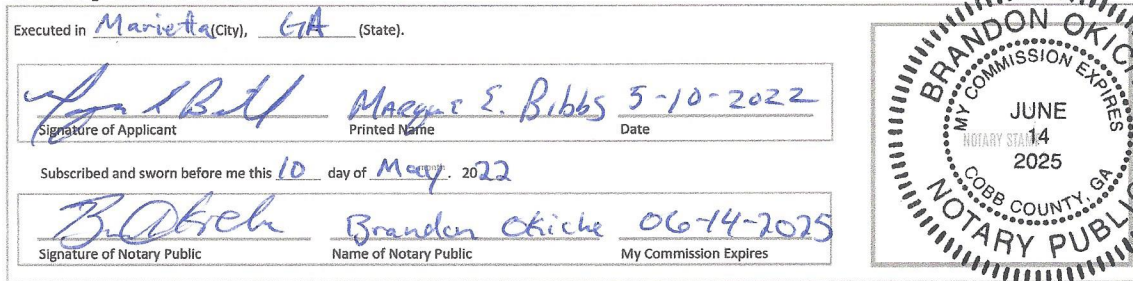 Executed in Marietta (City), GA (State).
E. Bibbs 5-10-2022
Signature of Applicant Printed Name Date
Subscribed and sworn before me this 10 day of May. 2022
Brandon Okiche 06-14-2025
Signature of Notary Public Name of Notary Public My Commission Expires
BRANDON OKICHE
MY COMMISSION EXPIRES
JUNE
NOTARY STAMP
14
2025
COBB COUNTY, GA
NOTARY PUBLIC